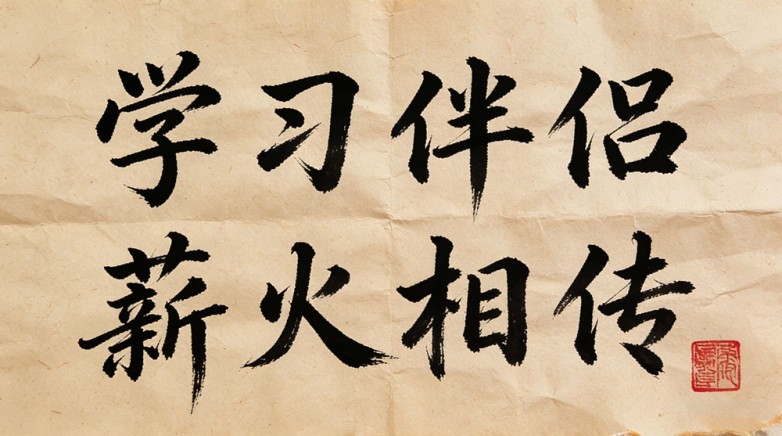 学习伴侣
薪火相传